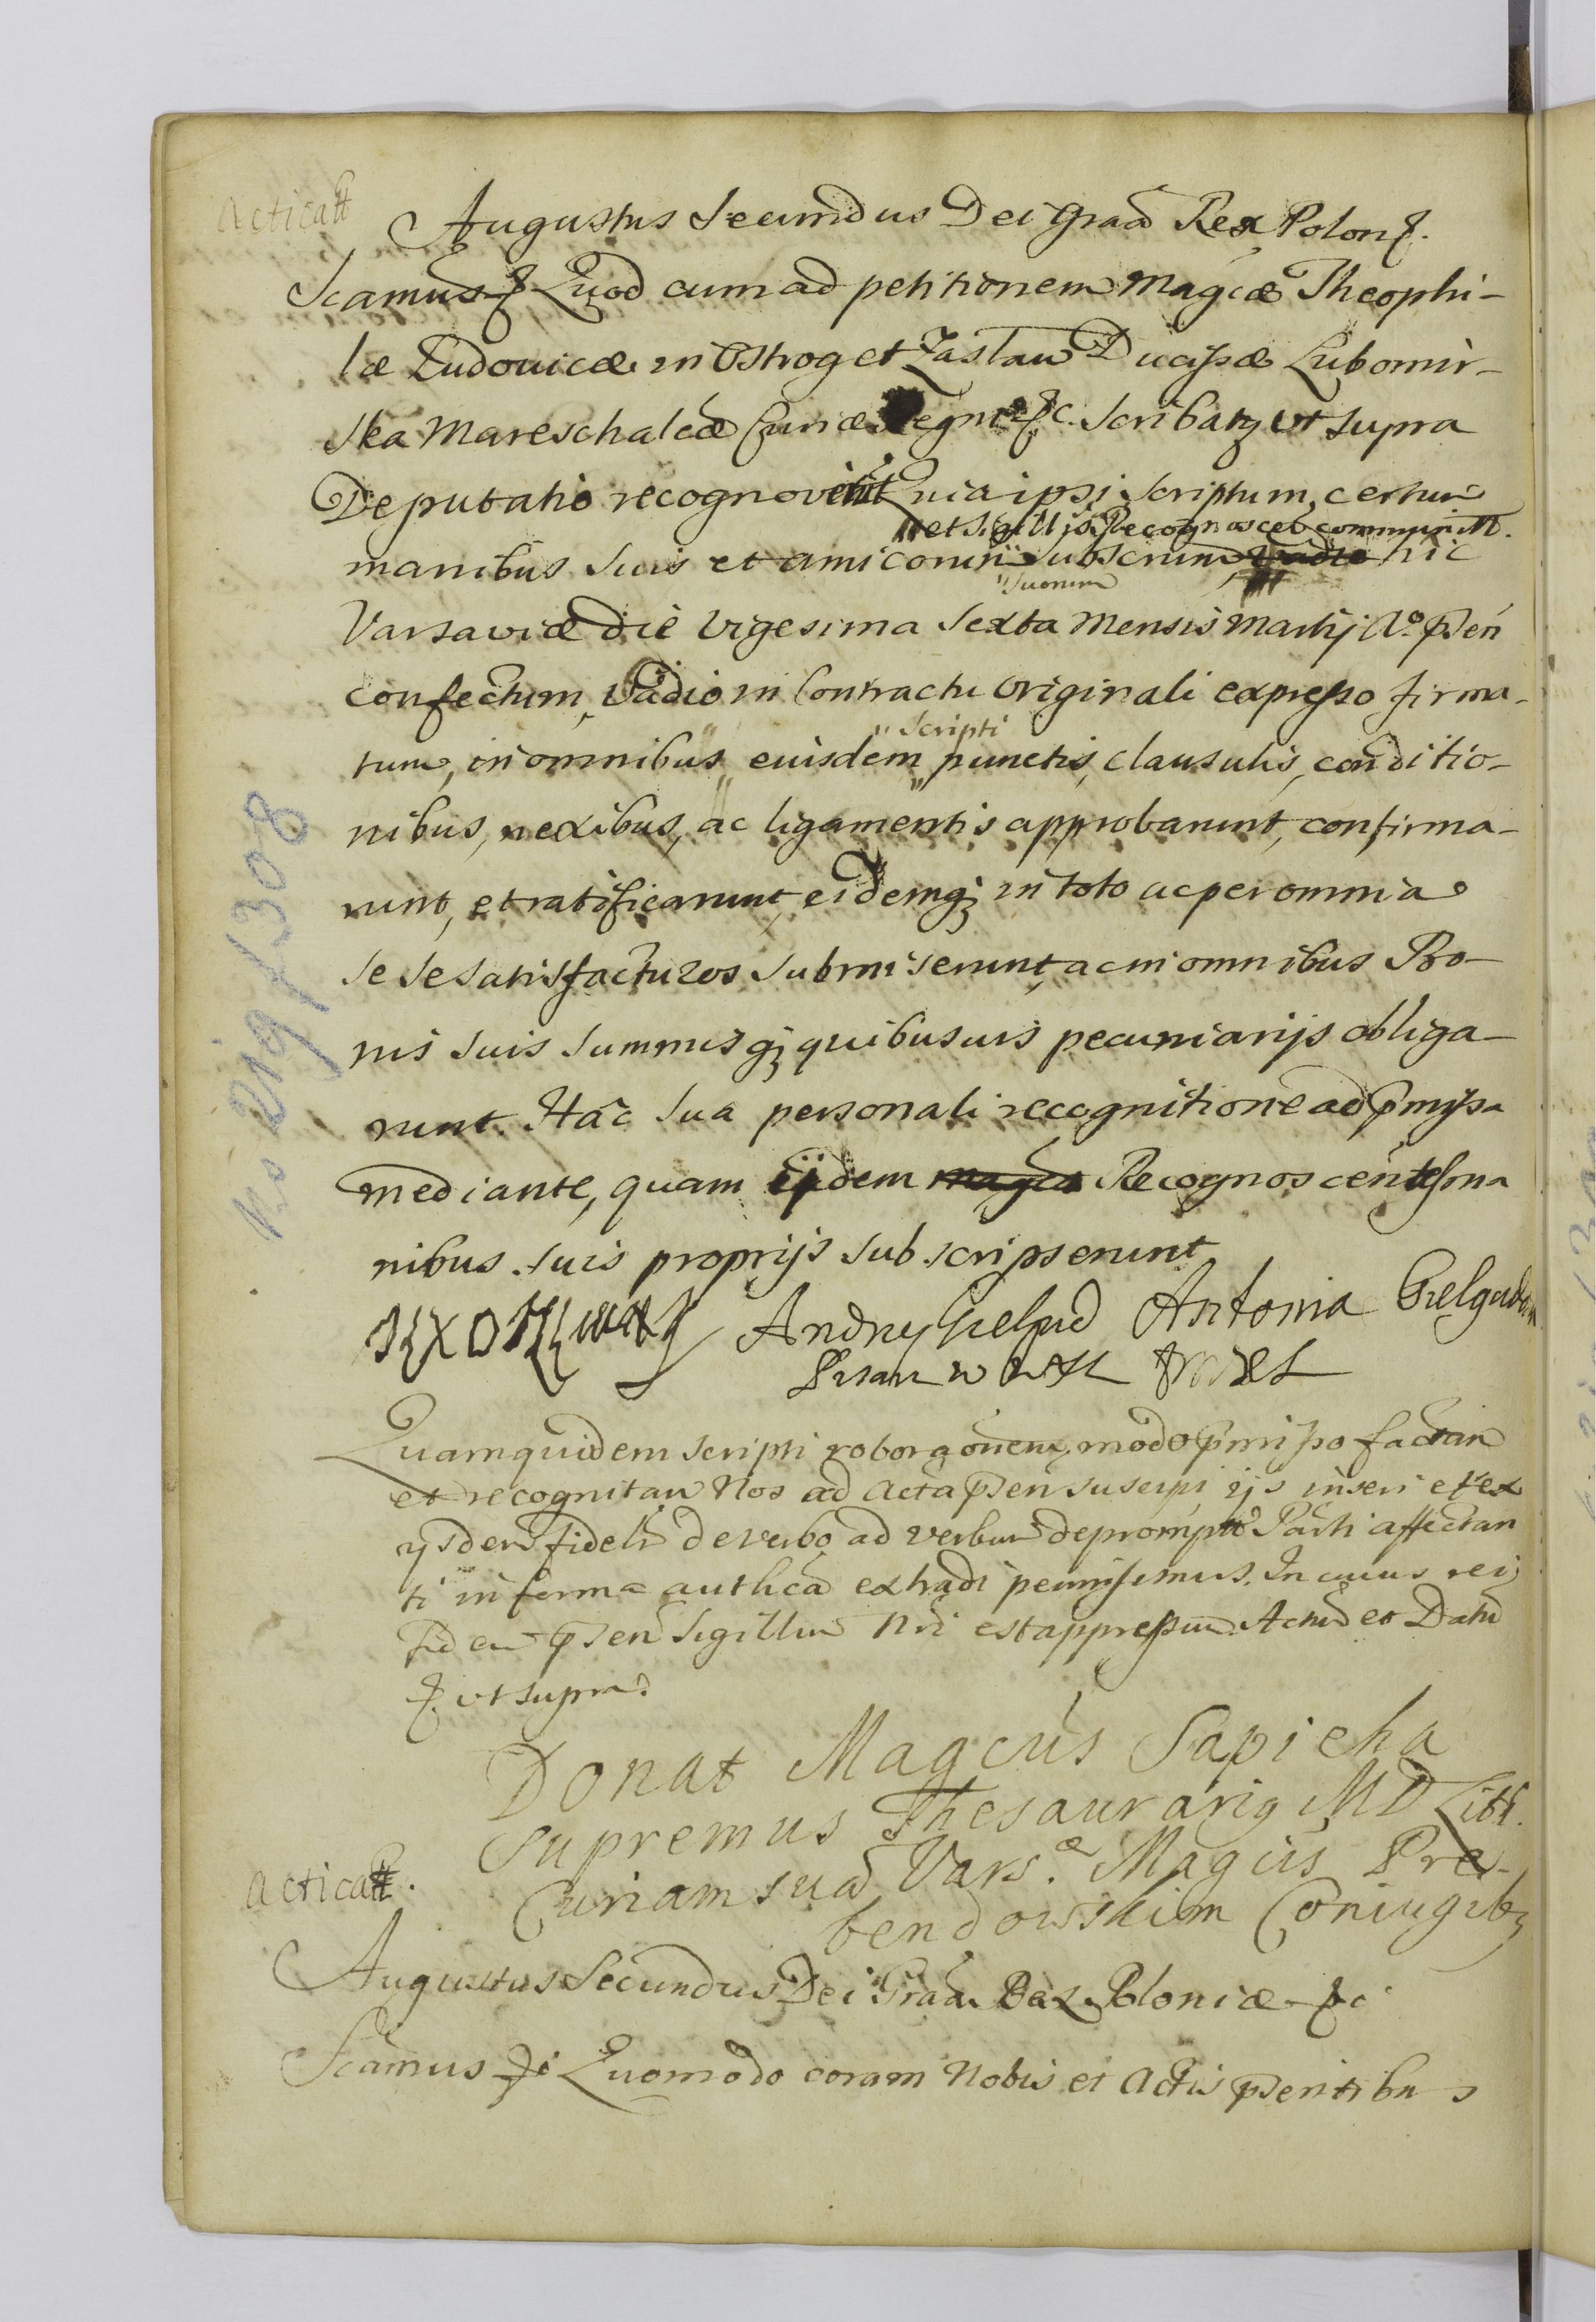 Acticatt
Augustus Secundus Dei Graã Rex Polon &.
Scamus & Quod cum ad petitionem Magcæ Theophi-
læ Ludouicæ in Ostrog et Zaslaw Ducissæ Lubomir-
ska Mareschalcæ Curiæ Regni &c. Scribatq ut supra
Deputatio recognoverit Quia ipsi scriptum certum
et Sigillis Recognoscen communit.
manibus suis et amicorum subscrium vadio hic
suorum
Varsaviæ die Vigesima Sexta Mensis Martij Aº pñsen
confectum, Vadio in Contractu Originali expresso firma-
scripti
tum, in omnibus eiusdem punctis, clausulis, conditio-
nibus, nexibus, ac ligamentis approbarunt, confirma-
runt, et ratificarunt, eidemq; in toto ac per omnia
se se satisfacturos submiserunt, ac in omnibus Bo-
nis suis summisq; quibusuis pecuniarijs obliga-
runt. Hac sua personali recognitione ad pmissa
mediante, quam ijdem magci Recognoscentes ma
nibus suis proprijs subscripserunt
Andrzej Gielgud Antonia Gielgudowa
Quamquidem scripti roboraõnem, modo pmisso factam
et recognitam Nos ad Acta pñsen suscipi ijs inseri et ex
ijsdem fideli de verbo ad verbum depromptũ Parti affectan
ti in forma authcã extradi permisimus. In cuius rei
fidem pñsen Sigillum Nri est appressum. Actum et Datũ
& ut supra.
Donat Magcus Sapieha
Supremus Thesaurariq MD Lith.
Curiam suã Vars.æ Magcis Pre-
bendowskim Coniugibq
Acticatt.
Augustus Secundus Dei Graã Rex Poloniæ &c
Scamus &c Quomodo coram Nobis et Actis pñsentibus